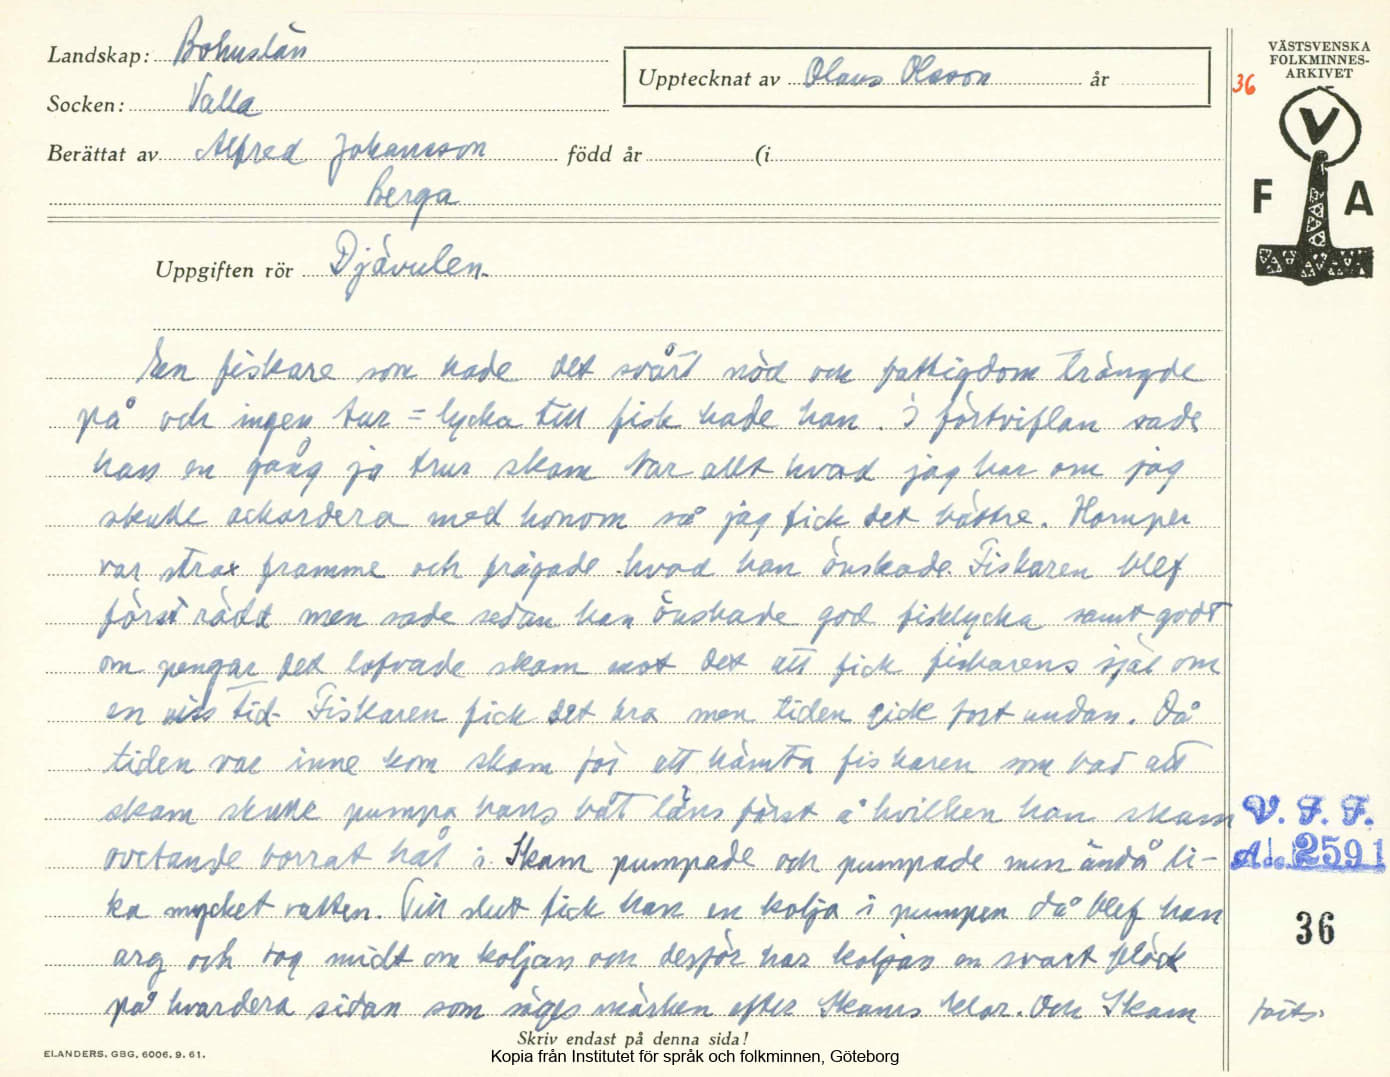 Landskap: Bohuslän
Socken: Valla
Berättat av Alfred Johansson född år (i
Berga
Upptecknat av Olaus Olsson år
VÄSTSVENSKA
FOLKMINNES-
ARKIVET
36
V
F A
Uppgiften rör Djävulen.
En fiskare som hade det svårt nöd och fattigdom trängde
på och ingen tur = lycka till fisk hade han. I förtviflan sade
han en gång ja trur skam tar allt hvad jag har om jag
skulle ackordera med honom så jag fick det bättre. Hornper
var strax framme och frågade hvad han önskade. Fiskaren blef
först rädd men sade sedan han önskade god fisklycka samt godt
om pengar det lofvade skam mot det att fick fiskarens själ om
en viss tid. Fiskaren fick det bra men tiden gick fort undan. Då
tiden var inne kom skam för att hämta fiskaren som bad att
skam skulle pumpa hans båt läns först å hvilken han skam
ovetande borrat hål i. Skam pumpade och pumpade men ändå li-
ka mycket vatten. Till slut fick han en kolja i pumpen då blef han
arg och tog midt om koljan och derför har koljan en svart fläck
på hvardera sidan som säges märken efter Skams klor. Och Skam
V. F. F.
Acc. 2591
36
forts.
Skriv endast på denna sida!
ELANDERS, GBG, 6006. 9. 61.
Kopia från Institutet för språk och folkminnen, Göteborg